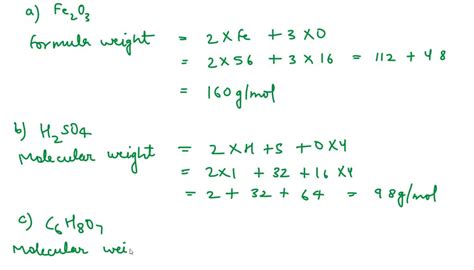 a) Fe₂O₃
Formula weight = 2×Fe + 3×O
= 2×56 + 3×16 = 112 + 48
= 160g/mol
b) H₂SO4
Molecular weight = 2×H + S + O×4
= 2×1 + 32 + 16×4
= 2 + 32 + 64 = 98g/mol
c) C₆H₈O₇
Molecular wei